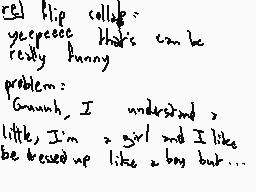 re: flip collab:
yeepeeee that's can be
really funny
problem:
Guuuh, I understand a
little, I'm a girl and I like
be dressed up like a boy but...